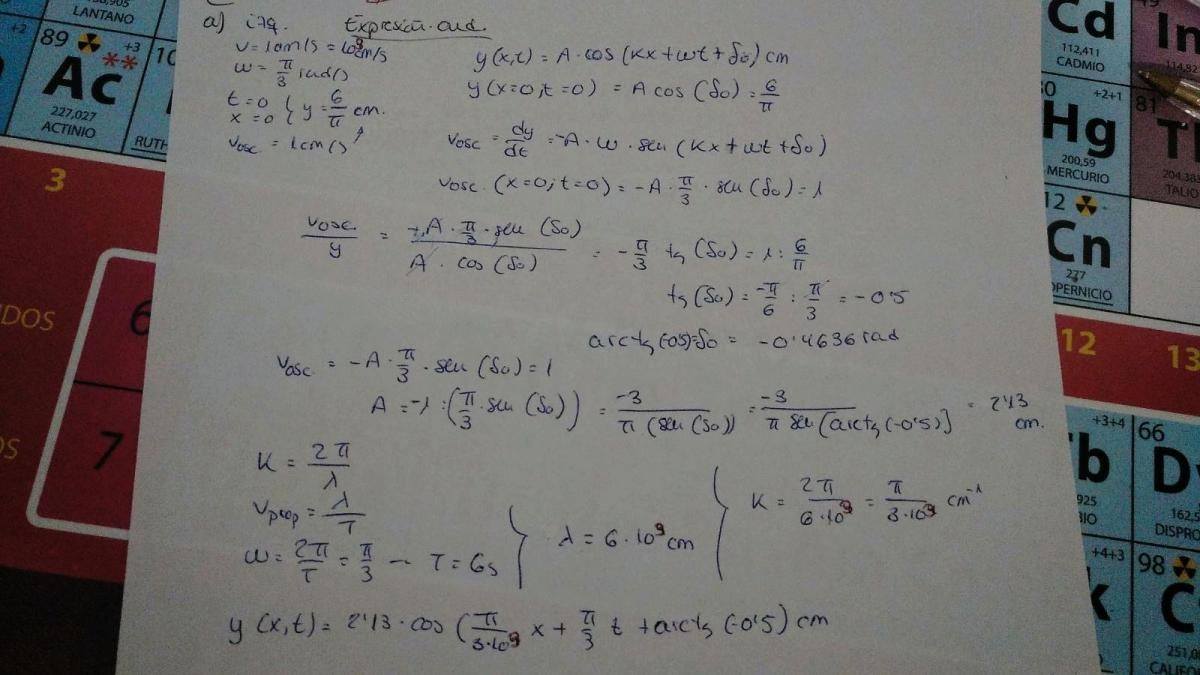 LANTANO
+2
89
+3
Ac
227,027
ACTINIO
RUTH
3
6
7
a) izq. Expresión ond.
v = 1cm/s = 10⁹cm/s
ω = π/3 rad/s
t=0
x=0 { y = 6/π cm.
vosc = 1cm/s
y(x,t) = A·cos(Kx+ωt+δo) cm
y(x=0,t=0) = A cos(δo) = 6/π
vosc = dy/dt = -A·ω·sen(Kx+ωt+δo)
vosc.(x=0;t=0) = -A·π/3·sen(δo) = 1
vosc./y = -A·π/3·sen(δo) / A·cos(δo) = -π/3 tg(δo) = 1 : 6/π
tg(δo) = -π/6 : π/3 = -0'5
arctg(-0'5)=δo = -0'4636 rad
vosc = -A·π/3·sen(δo) = 1
A = -1 : (π/3·sen(δo)) = -3/π(sen(δo)) = -3/π sen[arctg(-0'5)] = 2'13 cm.
K = 2π/λ
vprop = λ/T
ω = 2π/T = π/3 — T = 6s } λ = 6·10⁹ cm { K = 2π/6·10⁹ = π/3·10⁹ cm⁻¹
y(x,t) = 2'13·cos(π/3·10⁹ x + π/3 t + arctg(-0'5)) cm
Cd
112,411
CADMIO
In
+2+1
81
Hg
200,59
MERCURIO
TALIO
12
Cn
277
OPERNICIO
12
13
+3+4
66
b
Dy
925
162,5
DISPRO
+4+3
98
k
C
251,0
CALIFO